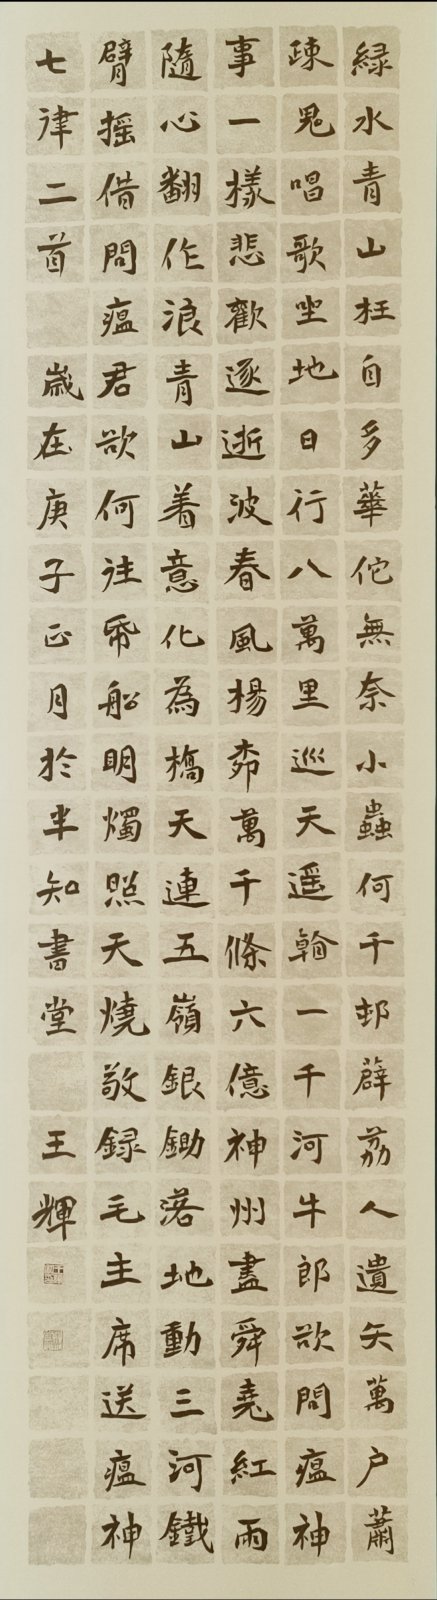 緑水青山枉自多華佗無奈小蟲何千邨薜荔人遺矢萬户蕭
疎鬼唱歌坐地日行八萬里巡天遥看一千河牛郎欲問瘟神
事一樣悲歡逐逝波春風楊桺萬千條六億神州盡舜堯紅雨
隨心翻作浪青山着意化為橋天連五嶺銀鋤落地動三河鐵
臂摇借問瘟君欲何往帋船明燭照天燒敬録毛主席送瘟神
七律二首 歲在庚子正月於半知書堂 王輝